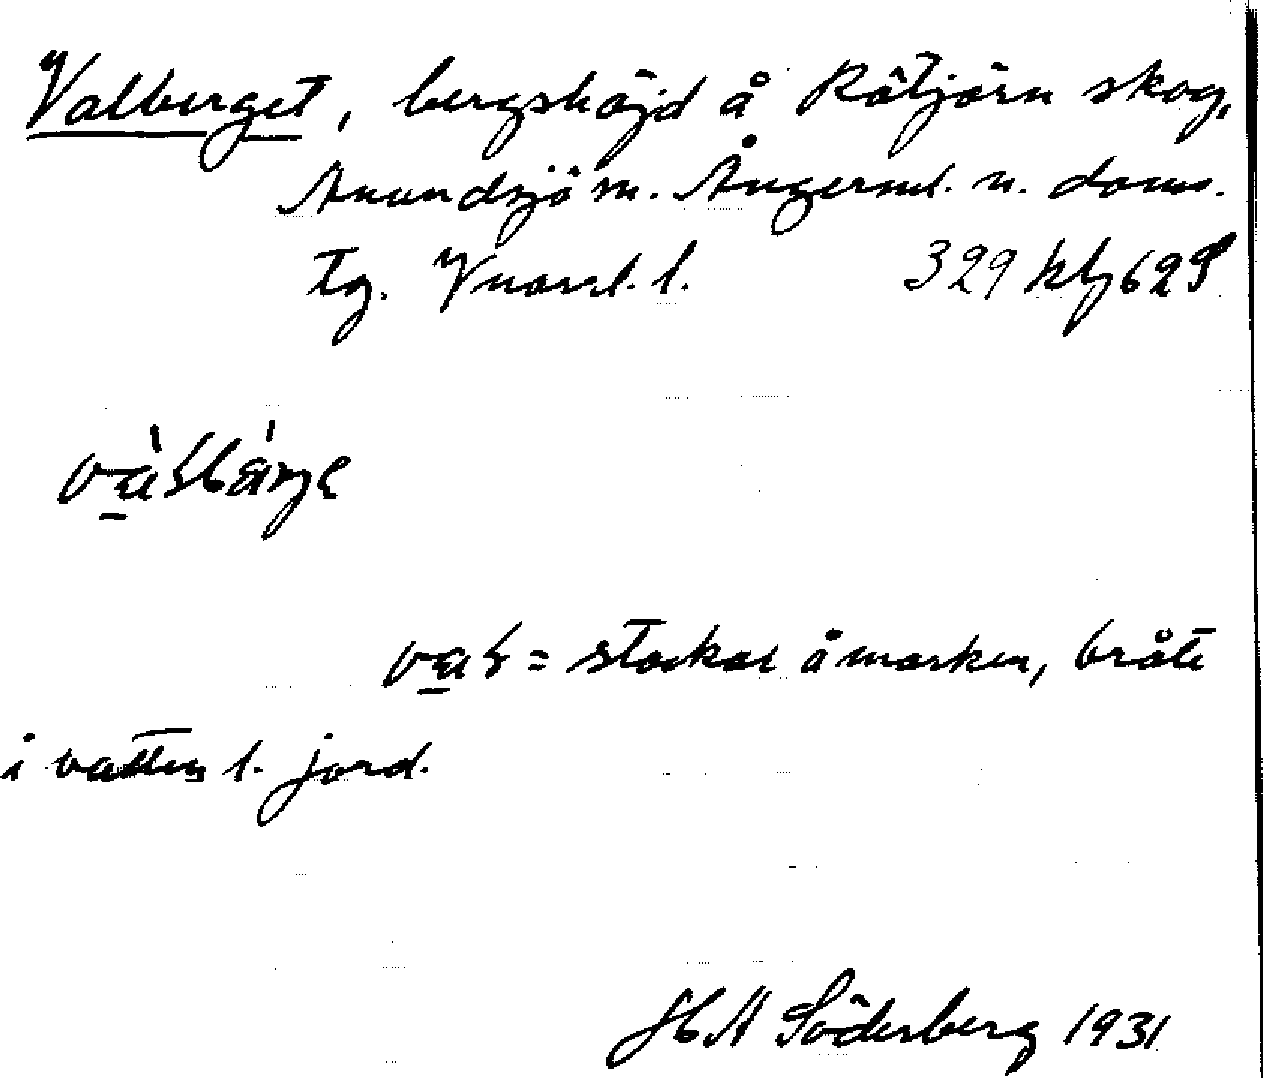 Valberget, bergshöjd å Rötjärn skog,
Anundsjö sn. Ångerml. n. doms.
tg. Vnorrl. l. 329 klj 629
stockar å marken, bråte
i vatten l. jord.
H A Söderberg 1931